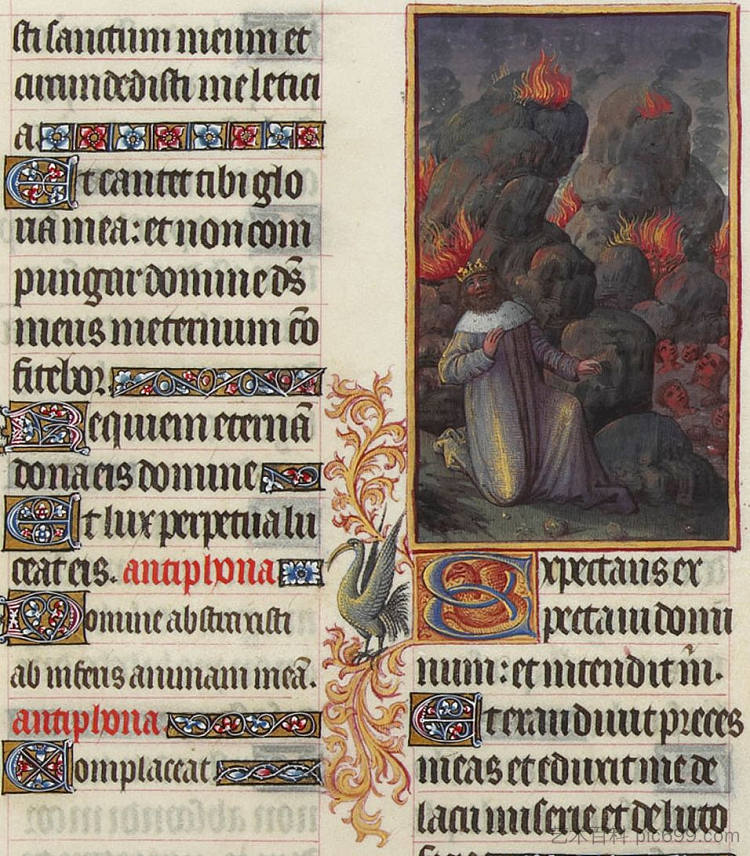 sti sanctum meum et
circumdedisti me letici
a.
Et cantet tibi glo
ria mea: et non com
pungar domine ds̄
meus in eternum cō
fitebor.
Requiem eternā
dona eis domine
Et lux perpetua lu
ceat eis. antiphona
Domine abstraxisti
ab inferis animam meā.
antiphona
Complaceat
Expectans ex
pectavi domi
num: et intendit m̄.
Et exaudivit preces
meas et eduxit me de
lacu miserie et de luto
艺术百科 pic699.com